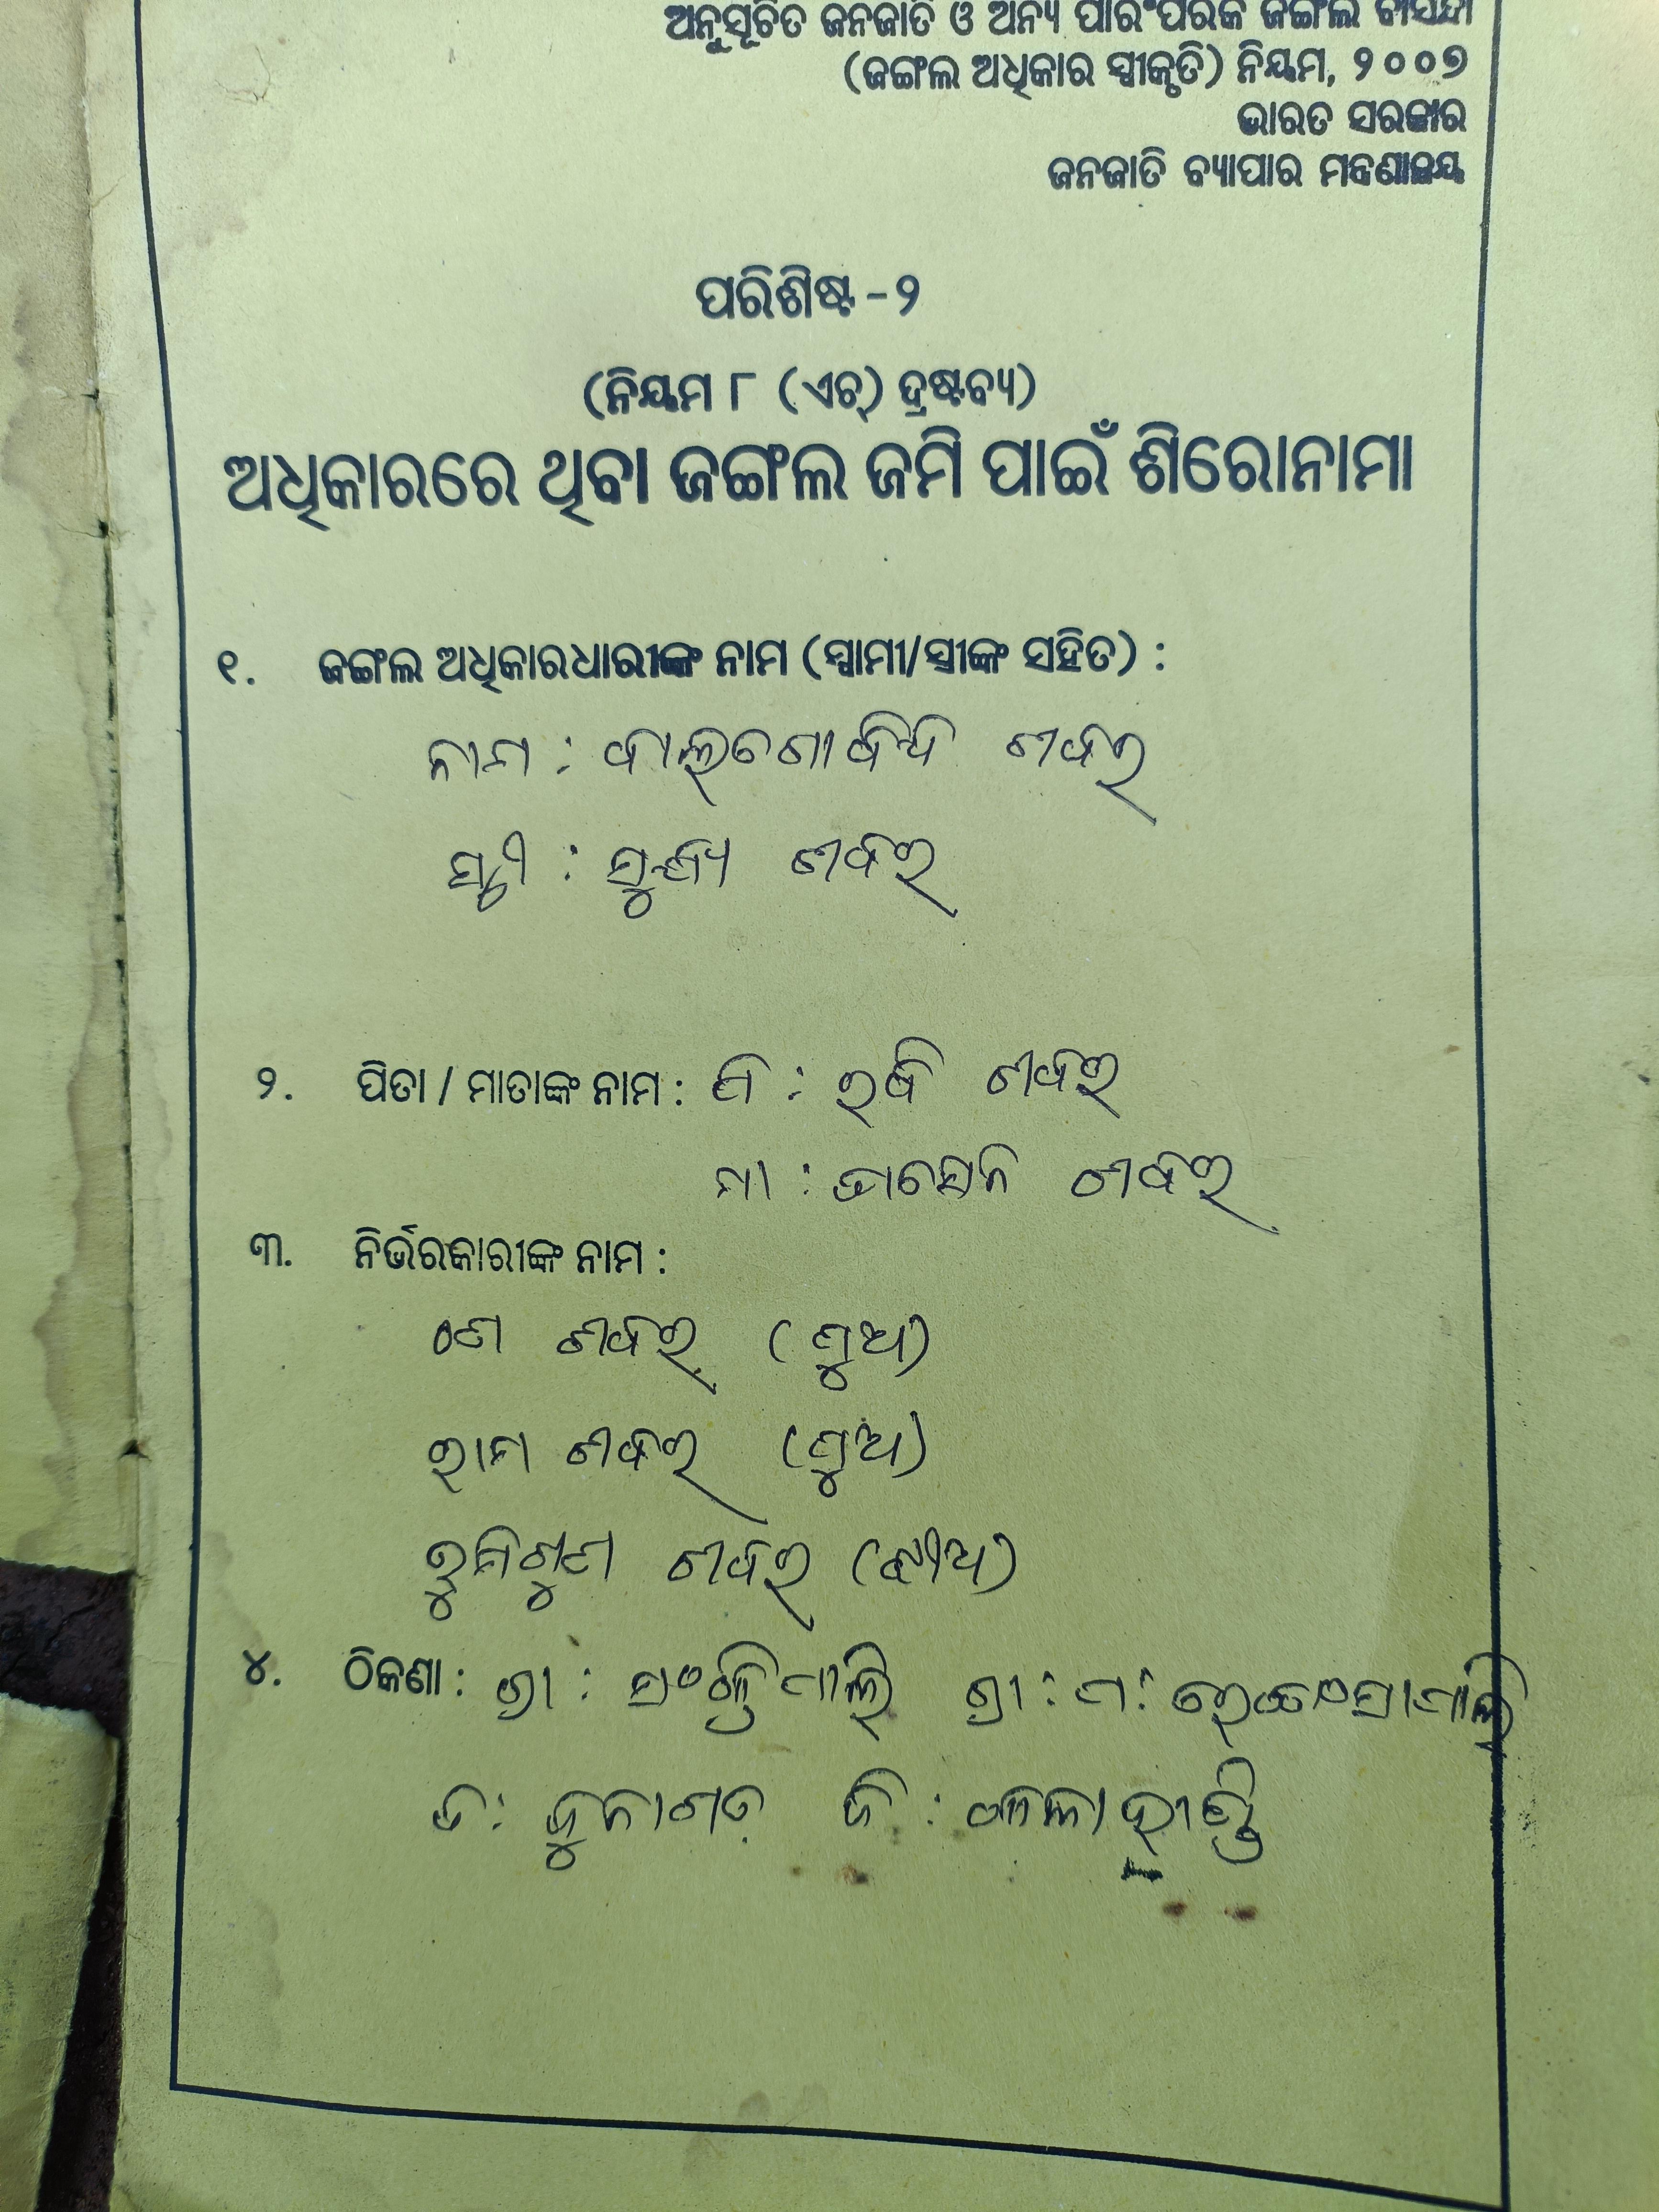 ଅନୁସୂଚିତ ଜନଜାତି ଓ ଅନ୍ୟ ପାରଂପରିକ ଜଙ୍ଗଲ ବାସିନ୍ଦା
(ଜଙ୍ଗଲ ଅଧିକାର ସ୍ୱୀକୃତି) ନିୟମ, ୨୦୦୭
ଭାରତ ସରକାର
ଜନଜାତି ବ୍ୟାପାର ମନ୍ତ୍ରଣାଳୟ
ପରିଶିଷ୍ଟ -୨
(ନିୟମ ୮ (ଏଚ୍) ଦ୍ରଷ୍ଟବ୍ୟ)
ଅଧିକାରରେ ଥିବା ଜଙ୍ଗଲ ଜମି ପାଇଁ ଶିରୋନାମା
୧. ଜଙ୍ଗଲ ଅଧିକାରଧାରୀଙ୍କ ନାମ (ସ୍ୱାମୀ/ସ୍ତ୍ରୀଙ୍କ ସହିତ) :
ନାମ : ଶବର
ସ୍ତ୍ରୀ : ଶବର
୨. ପିତା / ମାତାଙ୍କ ନାମ : ପି : ରବି ଶବର
ମା : ଶବର
୩. ନିର୍ଭରକାରୀଙ୍କ ନାମ :
ଶବର (ପୁଅ)
ରାମ ଶବର (ପୁଅ)
ଶବର (ଝୀଅ)
୪. ଠିକଣା : ଗ୍ରା : ଗ୍ରା : ପ :
ବ : ଜୁନାଗଡ଼ ଜି : କଳାହାଣ୍ଡି